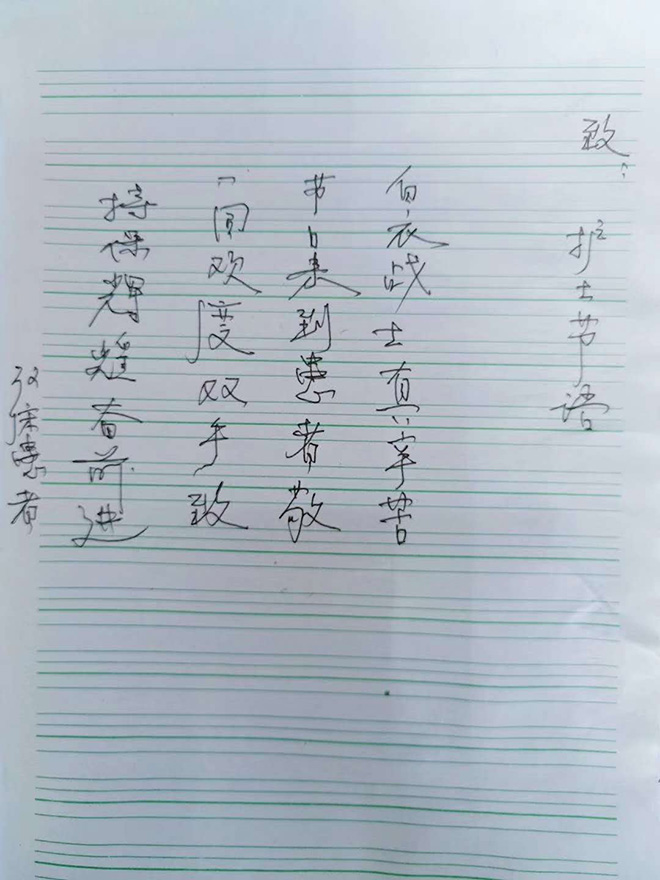 致:
护士节语
白衣战士真辛苦
节日来到患者敬
同欢度双手致
持保辉煌奋前进
床患者